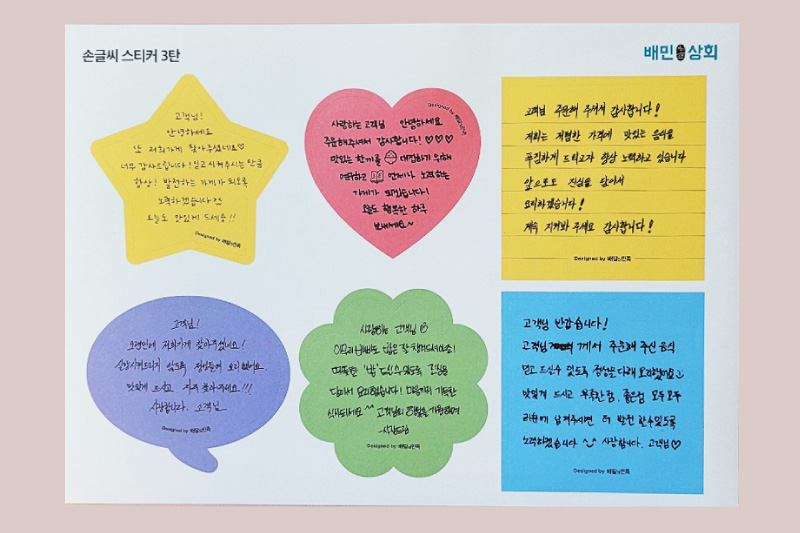 손글씨 스티커 3탄
배민상회
고객님!
안녕하세요
또 저희가게 찾아주셨네요♡♡
너무 감사드립니다! 믿고 시켜주시는 만큼
항상! 발전하는 가게가 되도록
노력하겠습니다
오늘도 맛있게 드세용!!
Designed by 배달의민족
사랑하는 고객님 안녕하세요
주문해주셔서 감사합니다! ♡♡♡
맛있는 한끼를 대접하기 위해
연구하고 언제나 노력하는
가게가 되겠습니다!
오늘도 행복한 하루
보내세요~
Designed by 배달의민족
고객님 주문해 주셔서 감사합니다!
저희는 저렴한 가격에 맛있는 음식을
푸짐하게 드리고자 항상 노력하고 있습니다
앞으로도 진심을 담아서
요리하겠습니다!
계속 지켜봐 주세요 감사합니다!
Designed by 배달의민족
고객님!
오랜만에 저희가게 찾아주셨네요!
실망시켜드리지 않도록 정성들여 요리했어요.
맛있게 드시고 자주 찾아주세요!!!
사랑합니다. 고객님
Designed by 배달의민족
사랑하는 고객님
아무리 바빠도 밥은 잘 챙겨드셔야죠!
따뜻한 '밥' 드실 수 있도록 진심을
담아서 요리했습니다! 마음까지 가득한
식사되세요^^ 고객님의 행복을 기원하며
-사장드림
Designed by 배달의민족
고객님 반갑습니다!
고객님 께서 주문해 주신 음식
믿고 드실수 있도록 정성을 다해 요리했어요
맛있게 드시고 부족한 점, 좋은점 모두 모두
리뷰에 남겨주시면 더 발전 할수있도록
노력하겠습니다 사랑합니다. 고객님♡
Designed by 배달의민족